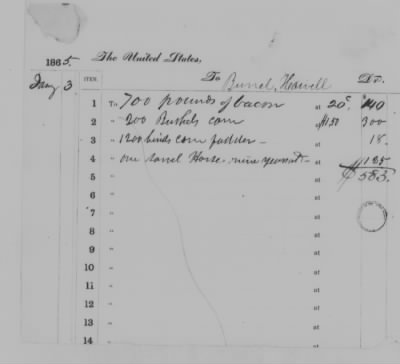 1865. The United States,
To Burrel, Howell Dr.
Jany 3. ITEM.
1 To 700 pounds of bacon at 20c 140
2 " 200 Bushels corn at $1.50 300
3 " 1200 binds corn fodder — at 18.
4 " one sorrel Horse nine years old — at 125
5 " at $583.
6 " at
7 " at
8 " at
9 " at
10 " at
11 " at
12 " at
13 " at
14 " at